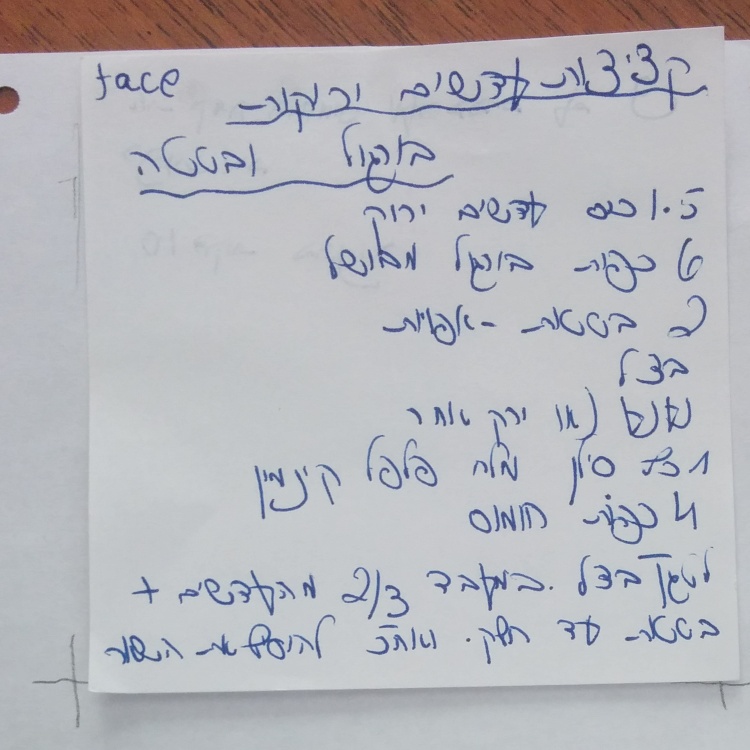 face
קציצות עדשים ירוקות
בורגול ובטטה
1.5 כוס עדשים ירוק
6 כפות בורגל מבושל
2 בטטות - אפויות
בצל
נענע (או ירק אחר
1 כף סילן מלח פלפל קינמון
4 כפות חומוס
לטגן בצל. במעבד 2/3 מהעדשים +
בטטות עד חלק. ואח"כ להוסיף את השאר